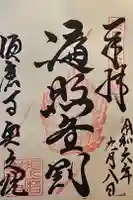 奉拝
令和六年
九月八日
遍照金剛
須磨寺奥之院